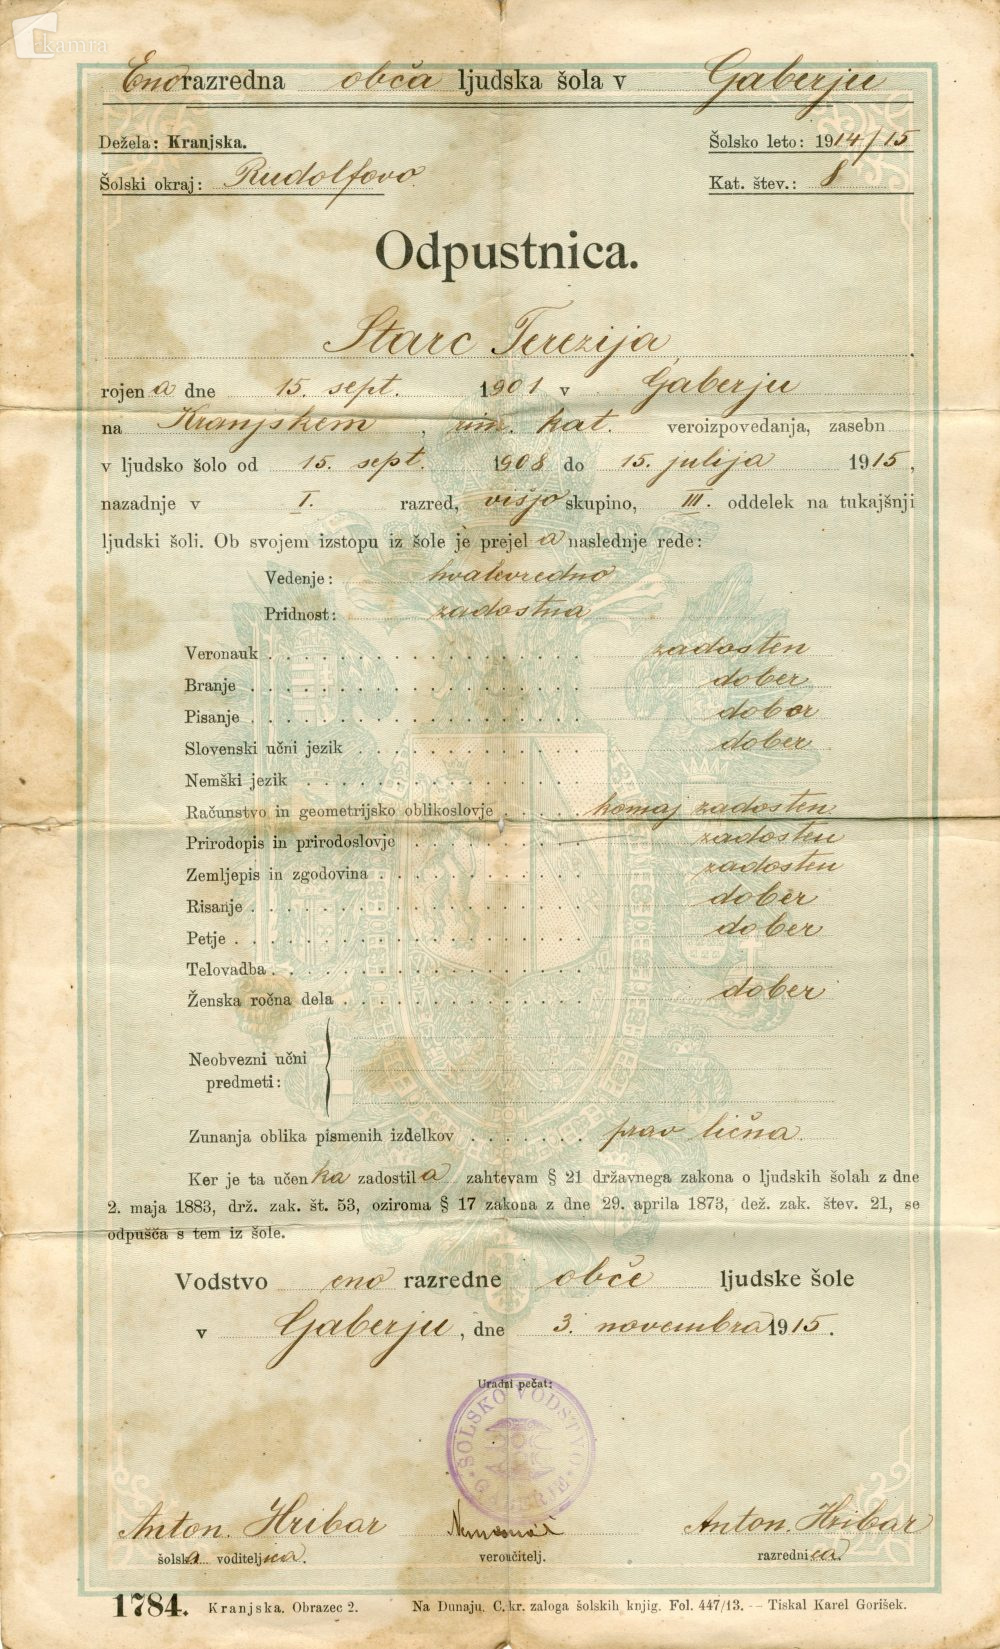 kamra
Enorazredna obča ljudska šola v Gaberju
Dežela: Kranjska.
Šolsko leto: 1914/15
Šolski okraj: Rudolfovo
Kat. štev.: 8
Odpustnica.
Starc Terezija
rojena dne 15. sept. 1901 v Gaberju
na Kranjskem, rim. kat. veroizpovedanja, zasebn
v ljudsko šolo od 15. sept. 1908 do 15. julija 1915,
nazadnje v I. razred, višjo skupino, III. oddelek na tukajšnji
ljudski šoli. Ob svojem izstopu iz šole je prejela naslednje rede:
Vedenje: hvalevredno
Pridnost: zadostna
Veronauk zadosten
Branje dober
Pisanje dober
Slovenski učni jezik dober
Nemški jezik
Računstvo in geometrijsko oblikoslovje komaj zadosten
Prirodopis in prirodoslovje zadosten
Zemljepis in zgodovina zadosten
Risanje dober
Petje dober
Telovadba
Ženska ročna dela dober
Neobvezni učni
predmeti:
Zunanja oblika pismenih izdelkov prav lična
Ker je ta učenka zadostila zahtevam § 21 državnega zakona o ljudskih šolah z dne
2. maja 1883, drž. zak. št. 53, oziroma § 17 zakona z dne 29. aprila 1873, dež. zak. štev. 21, se
odpušča s tem iz šole.
Vodstvo eno razredne obče ljudske šole
v Gaberju, dne 3. novembra 1915.
Uradni pečat:
ŠOLSKO VODSTVO
GABERJE
Anton. Hribar Anton. Hribar
šolska voditeljica. veroučitelj. razredničea.
1784. Kranjska. Obrazec 2. Na Dunaju. C. kr. zaloga šolskih knjig. Fol. 447/13. — Tiskal Karel Gorišek.